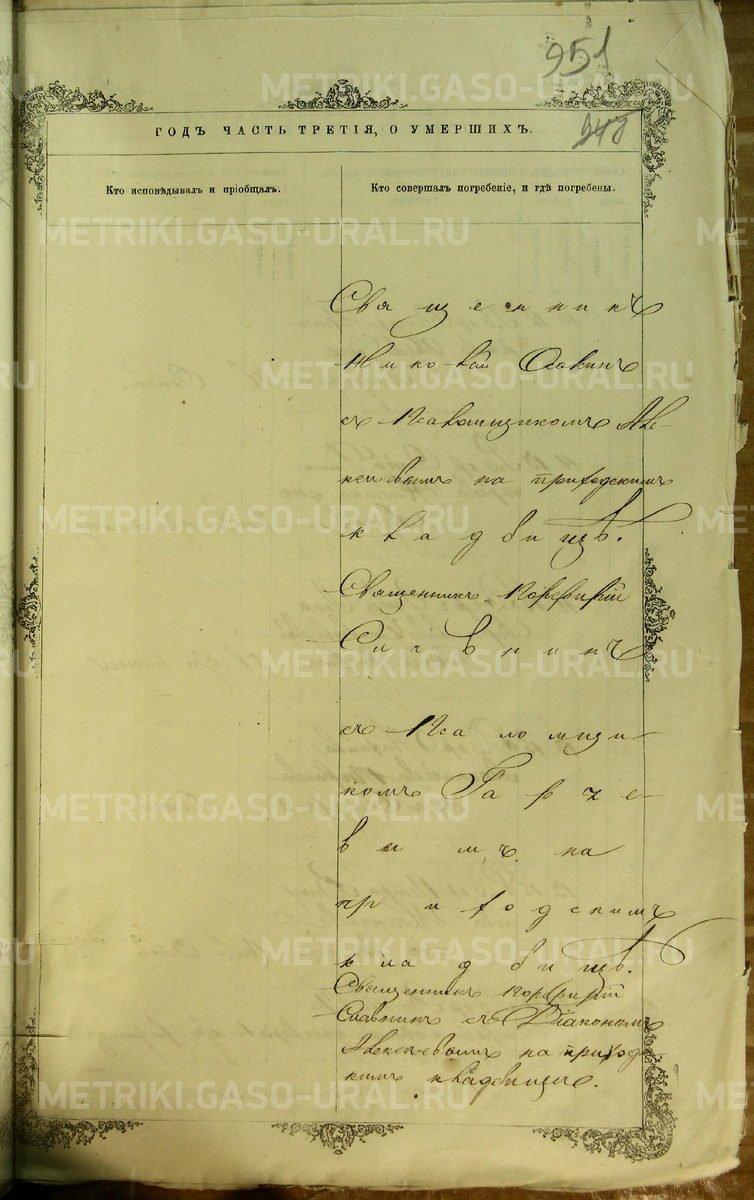 951
ГОДЪ ЧАСТЬ ТРЕТІЯ, О УМЕРШИХЪ.
Кто исповѣдывалъ и пріобщалъ.
Кто совершалъ погребеніе, и гдѣ погребены.
Священникъ
Николай
съ Псаломщикомъ Але-
ксеевымъ на приходскимъ
кладбищѣ.
Священникъ Порфирій
Славнинъ
съ Псаломщи-
комъ
вымъ на
приходскимъ
кладбищѣ.
Священникъ Порфирій
Славнинъ съ Діакономъ
Алексеевымъ на приход-
кимъ кладбищѣ.
METRIKI.GASO-URAL.RU